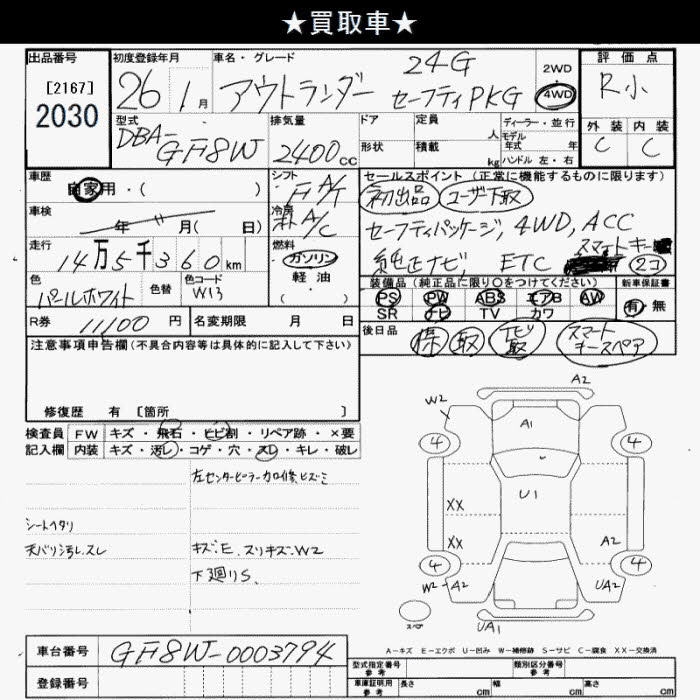 ★買取車★
出品番号 初度登録年月 車名・グレード 評価点
[2167]
2030
26 1月
アウトランダー 24G
セーフティPKG
2WD
4WD
R小
外装 内装
C C
型式 排気量 ドア 定員 ディーラー・並行
DBA-
GF8W 2400cc
人 モデル
年式 年
形状 積載 kg ハンドル 左・右
車歴 シフト セールスポイント (正常に機能するものに限ります)
自家用・( ) F A/T 初出品 ユーザー下取
車検 年 月( 日) 冷房 A/C セーフティパッケージ, 4WD, ACC
走行 14万5千360km 燃料 ガソリン 純正ナビ, ETC スマートキー 2コ
軽油
( )
色 パールホワイト 色替 色コード W13
装備品 (純正品に限り○をつけてください) 新車保証書
PS PW ABS エアB AW 有・無
SR ナビ TV カワ
R券 11100円 名変期限 月 日
後日品 保 取 ナビ取 スマートキースペア
注意事項申告欄(不具合内容等は具体的に記入して下さい)
修復歴 有 [箇所 ]
検査員 FW キズ・飛石・ヒビ割・リペア跡・×要
記入欄 内装 キズ・汚レ・コゲ・穴・スレ・キレ・破レ
左センターピラー
シートヘタリ
天バリ汚レ.スレ
キズ.E. スリキズ.W2
下廻りS.
A2
W2
4 A1 4
U1
XX
XX A2
4 4
W2 A2 UA2
スペア
UA1
A-キズ E-エクボ U-凹み W-補修跡 S-サビ C-腐食 XX-交換済
車台番号 GF8W-0003794
登録番号
型式指定番号 参考 類別区分番号 参考
車庫証明用 参考 長さ cm 幅 cm 高さ cm